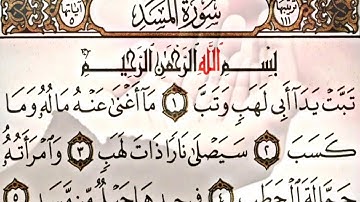 آياتها ٥ سورة المسد ترتيبها ١١١
بِسْمِ اللَّهِ الرَّحْمَٰنِ الرَّحِيمِ
تَبَّتْ يَدَآ أَبِي لَهَبٍ وَتَبَّ ١ مَآ أَغْنَىٰ عَنْهُ مَالُهُ وَمَا
كَسَبَ ٢ سَيَصْلَىٰ نَارًا ذَاتَ لَهَبٍ ٣ وَامْرَأَتُهُ
حَمَّالَةَ الْحَطَبِ ٤ فِي جِيدِهَا حَبْلٌ مِّن مَّسَدٍ ٥